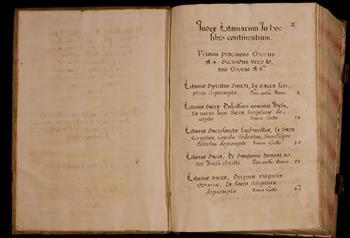 Index Litaniarum In hoc
libro continentium.
Primus præcinens Chorus
A 4. Secundus vero to,
tus Chorus A 6.
Litaniæ Spiritus Sancti, Ex Sacra Scri,
ptura depromptæ
Litaniæ Sacræ Dulcissimi nominis Jesu,
Ex nova lege Sacræ Scripturæ de,
cerptæ
Litaniæ Sacrosanctæ Eucharistiæ, Ex Sacra
Scriptura, Concilio Tridentino, Sanctisque
Patribus depromptæ
Litaniæ Sacræ, De Sanguine Domini no,
stri Jesu Christi
Litaniæ Sacræ, Deiparæ Virginis
Mariæ, Ex Sacra Scriptura
depromptæ